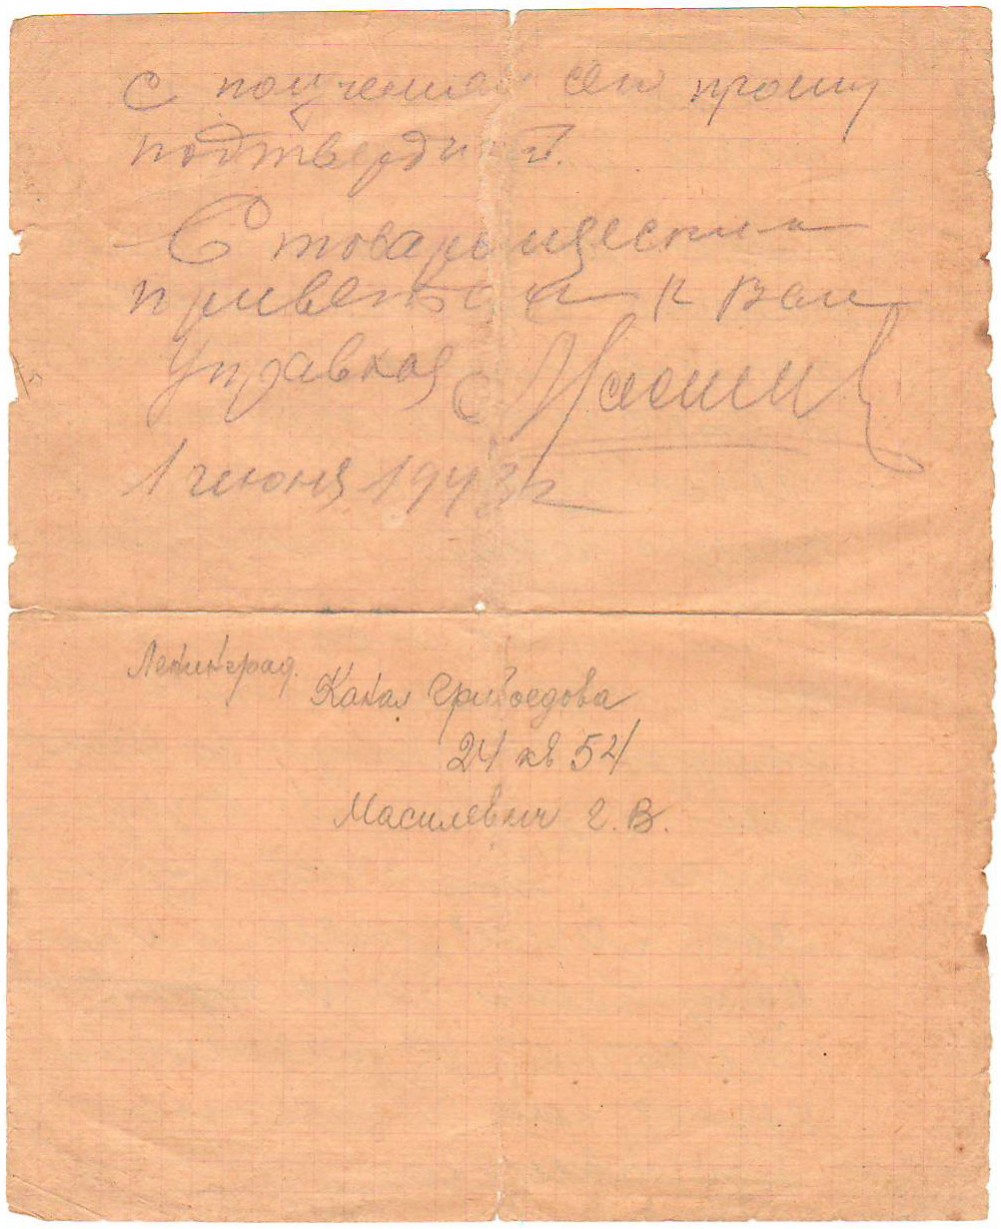 С получением сего прошу
подтвердить.
С товарищеским
приветом к Вам
Управхоз
1 июня 1943 г
Ленинград.
Канал Грибоедова
24 кв 54
Масилевич Г. В.